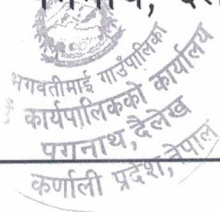 पगनाथ, दैलेख
भगवतीमाई गाउँपालिका
कार्यपालिकाको कार्यालय
पगनाथ, दैलेख
कर्णाली प्रदेश, नेपाल